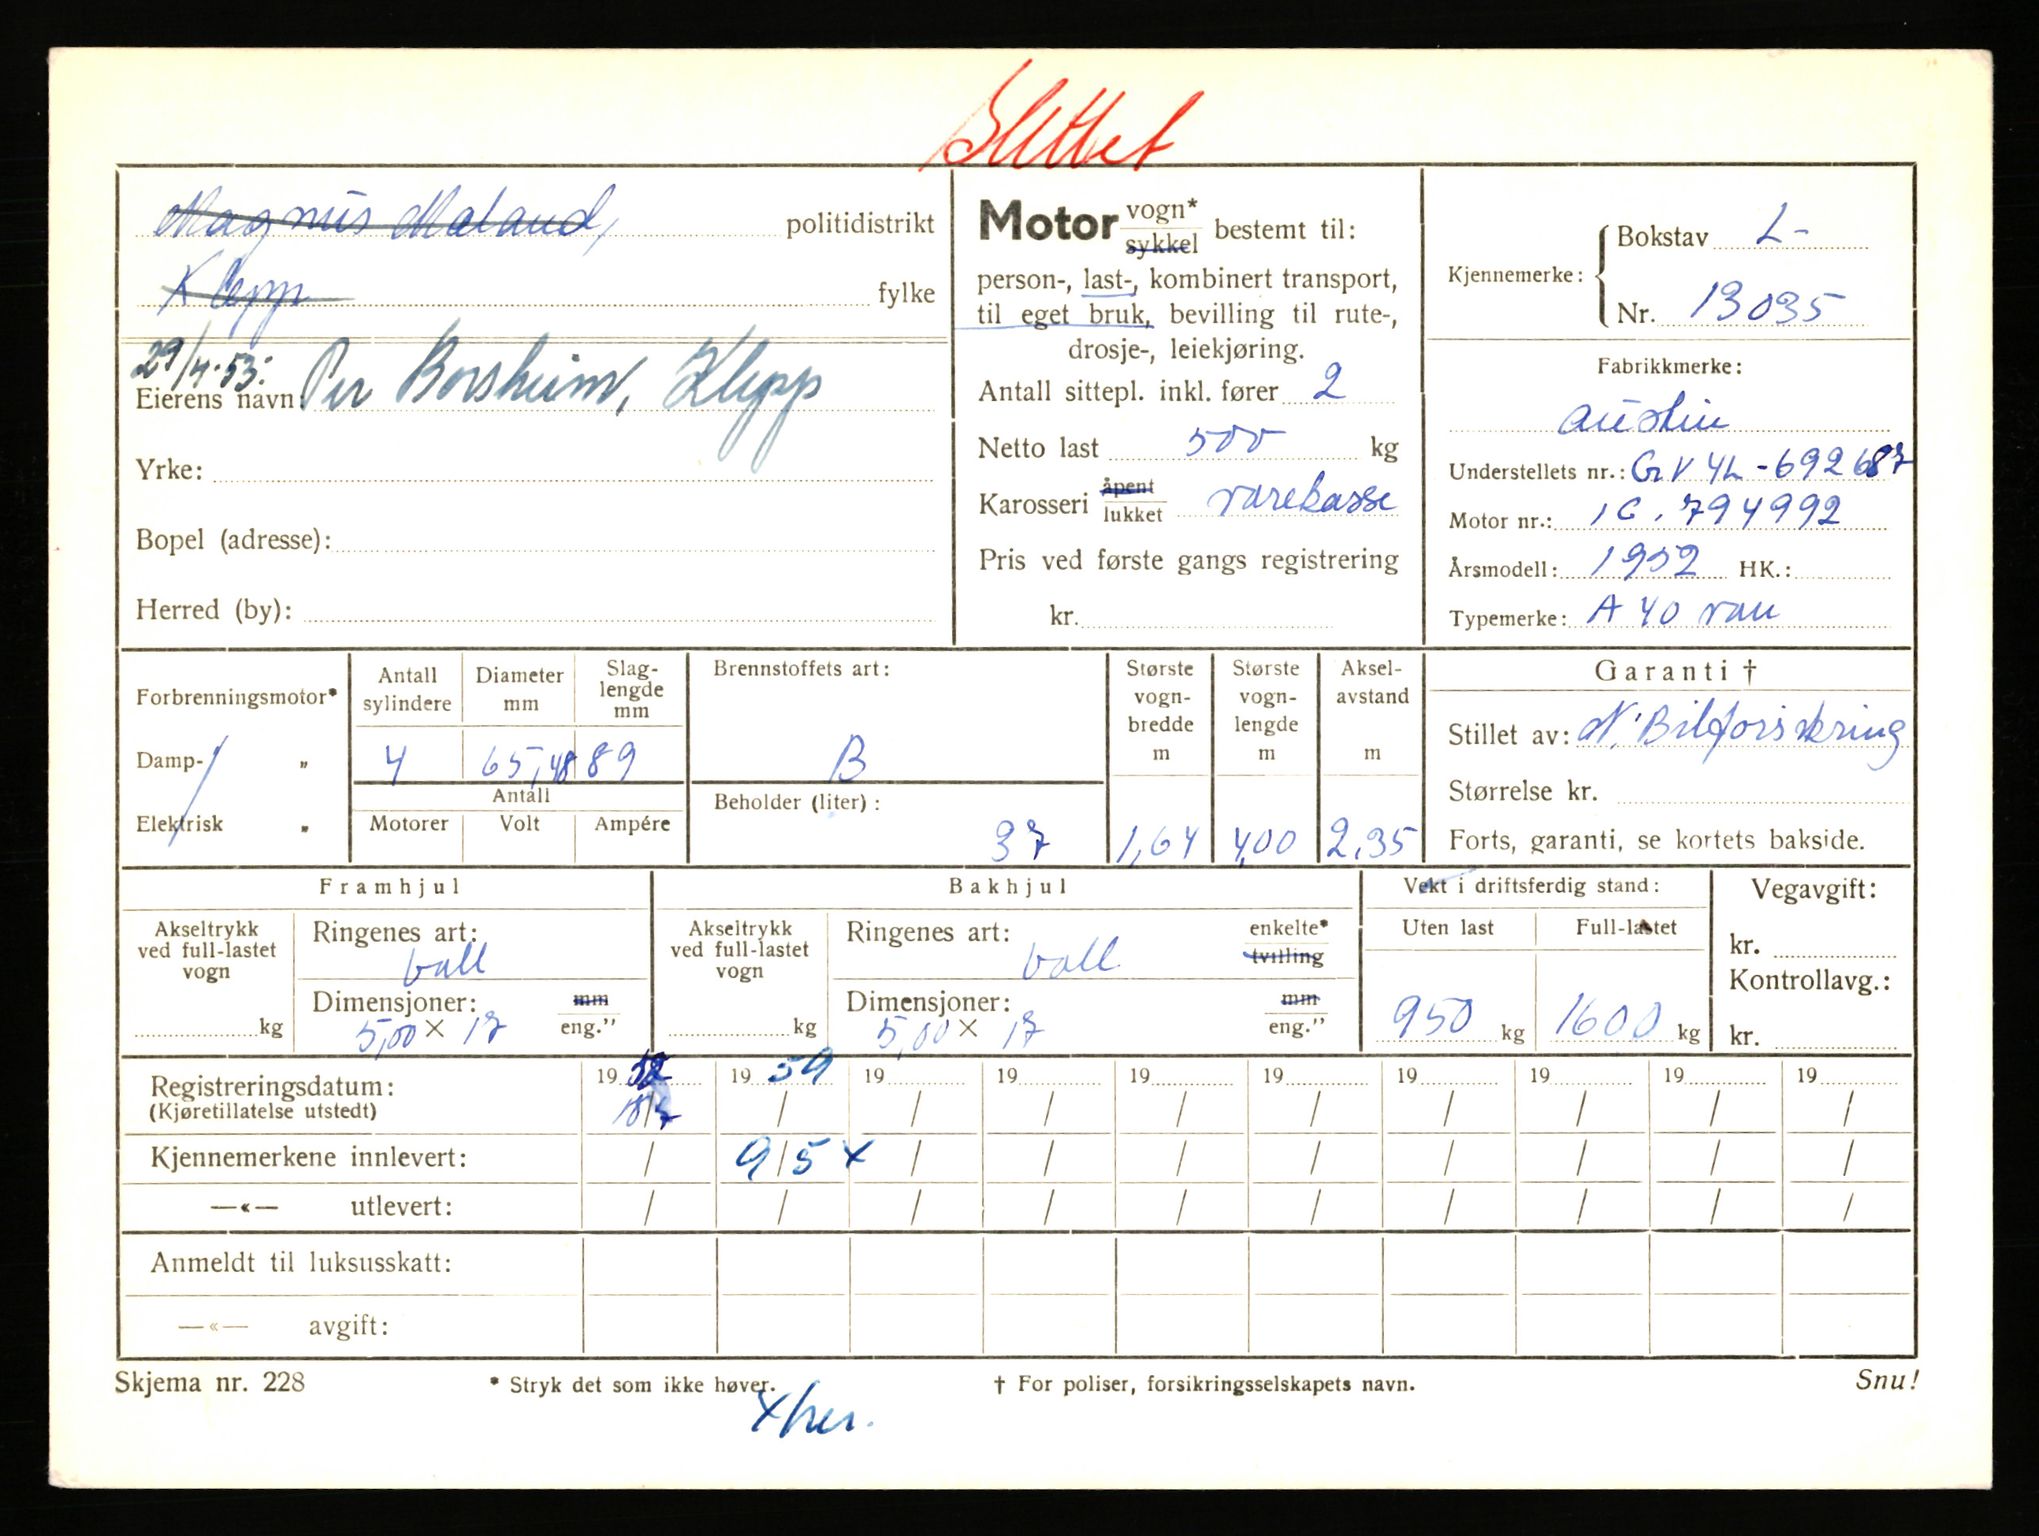 Slettet
Magnus Mæland, politidistrikt
Klepp fylke
29/4-53:
Eierens navn Per Borsheim, Klepp
Yrke:
Bopel (adresse):
Herred (by):
Motor vogn* sykkel bestemt til:
person-, last-, kombinert transport,
til eget bruk, bevilling til rute-,
drosje-, leiekjøring.
Antall sittepl. inkl. fører 2
Netto last 500 kg
Karosseri åpent lukket varekasse
Pris ved første gangs registrering
kr.
Kjennemerke: Bokstav L-
Nr. 13035
Fabrikkmerke:
Austin
Understellets nr.: GV4L-692687
Motor nr.: 1G.794992
Årsmodell: 1952 HK.:
Typemerke: A 40 van
Forbrenningsmotor*
Damp- "
Elektrisk "
Antall sylindere 4
Diameter mm 65,48
Slaglengde mm 89
Antall
Motorer Volt Ampére
Brennstoffets art:
B
Beholder (liter):
37
Største vogn-bredde m 1,64
Største vogn-lengde m 4,00
Aksel-avstand m 2,35
Garanti †
Stillet av: N. Bilforsikring
Størrelse kr.
Forts, garanti, se kortets bakside.
Framhjul
Akseltrykk ved full-lastet vogn
kg
Ringenes art:
ball
Dimensjoner: mm
5,00 × 17 eng."
Bakhjul
Akseltrykk ved full-lastet vogn
kg
Ringenes art: enkelte* tvilling
ball
Dimensjoner: mm
5,00 × 17 eng."
Vekt i driftsferdig stand:
Uten last Full-lastet
950 kg 1600 kg
Vegavgift:
kr.
Kontrollavg.:
kr.
Registreringsdatum: 19 52 19 59 19 19 19 19 19 19 19 19
(Kjøretillatelse utstedt) 18/7 / / / / / / / / /
Kjennemerkene innlevert: / 9/5 x / / / / / / / /
—«— utlevert: / / / / / / / / / /
Anmeldt til luksusskatt:
—«— avgift:
Skjema nr. 228
* Stryk det som ikke høver.
† For poliser, forsikringsselskapets navn.
Snu!
x her.